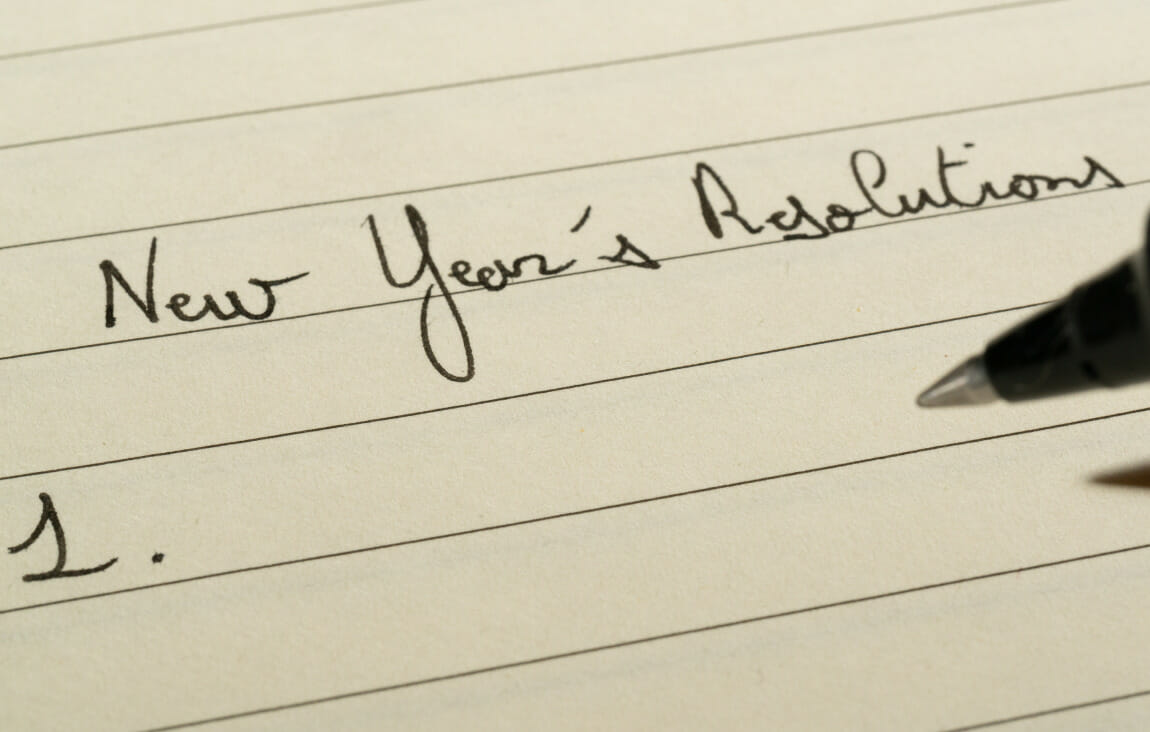 New Year's Resolutions
1.